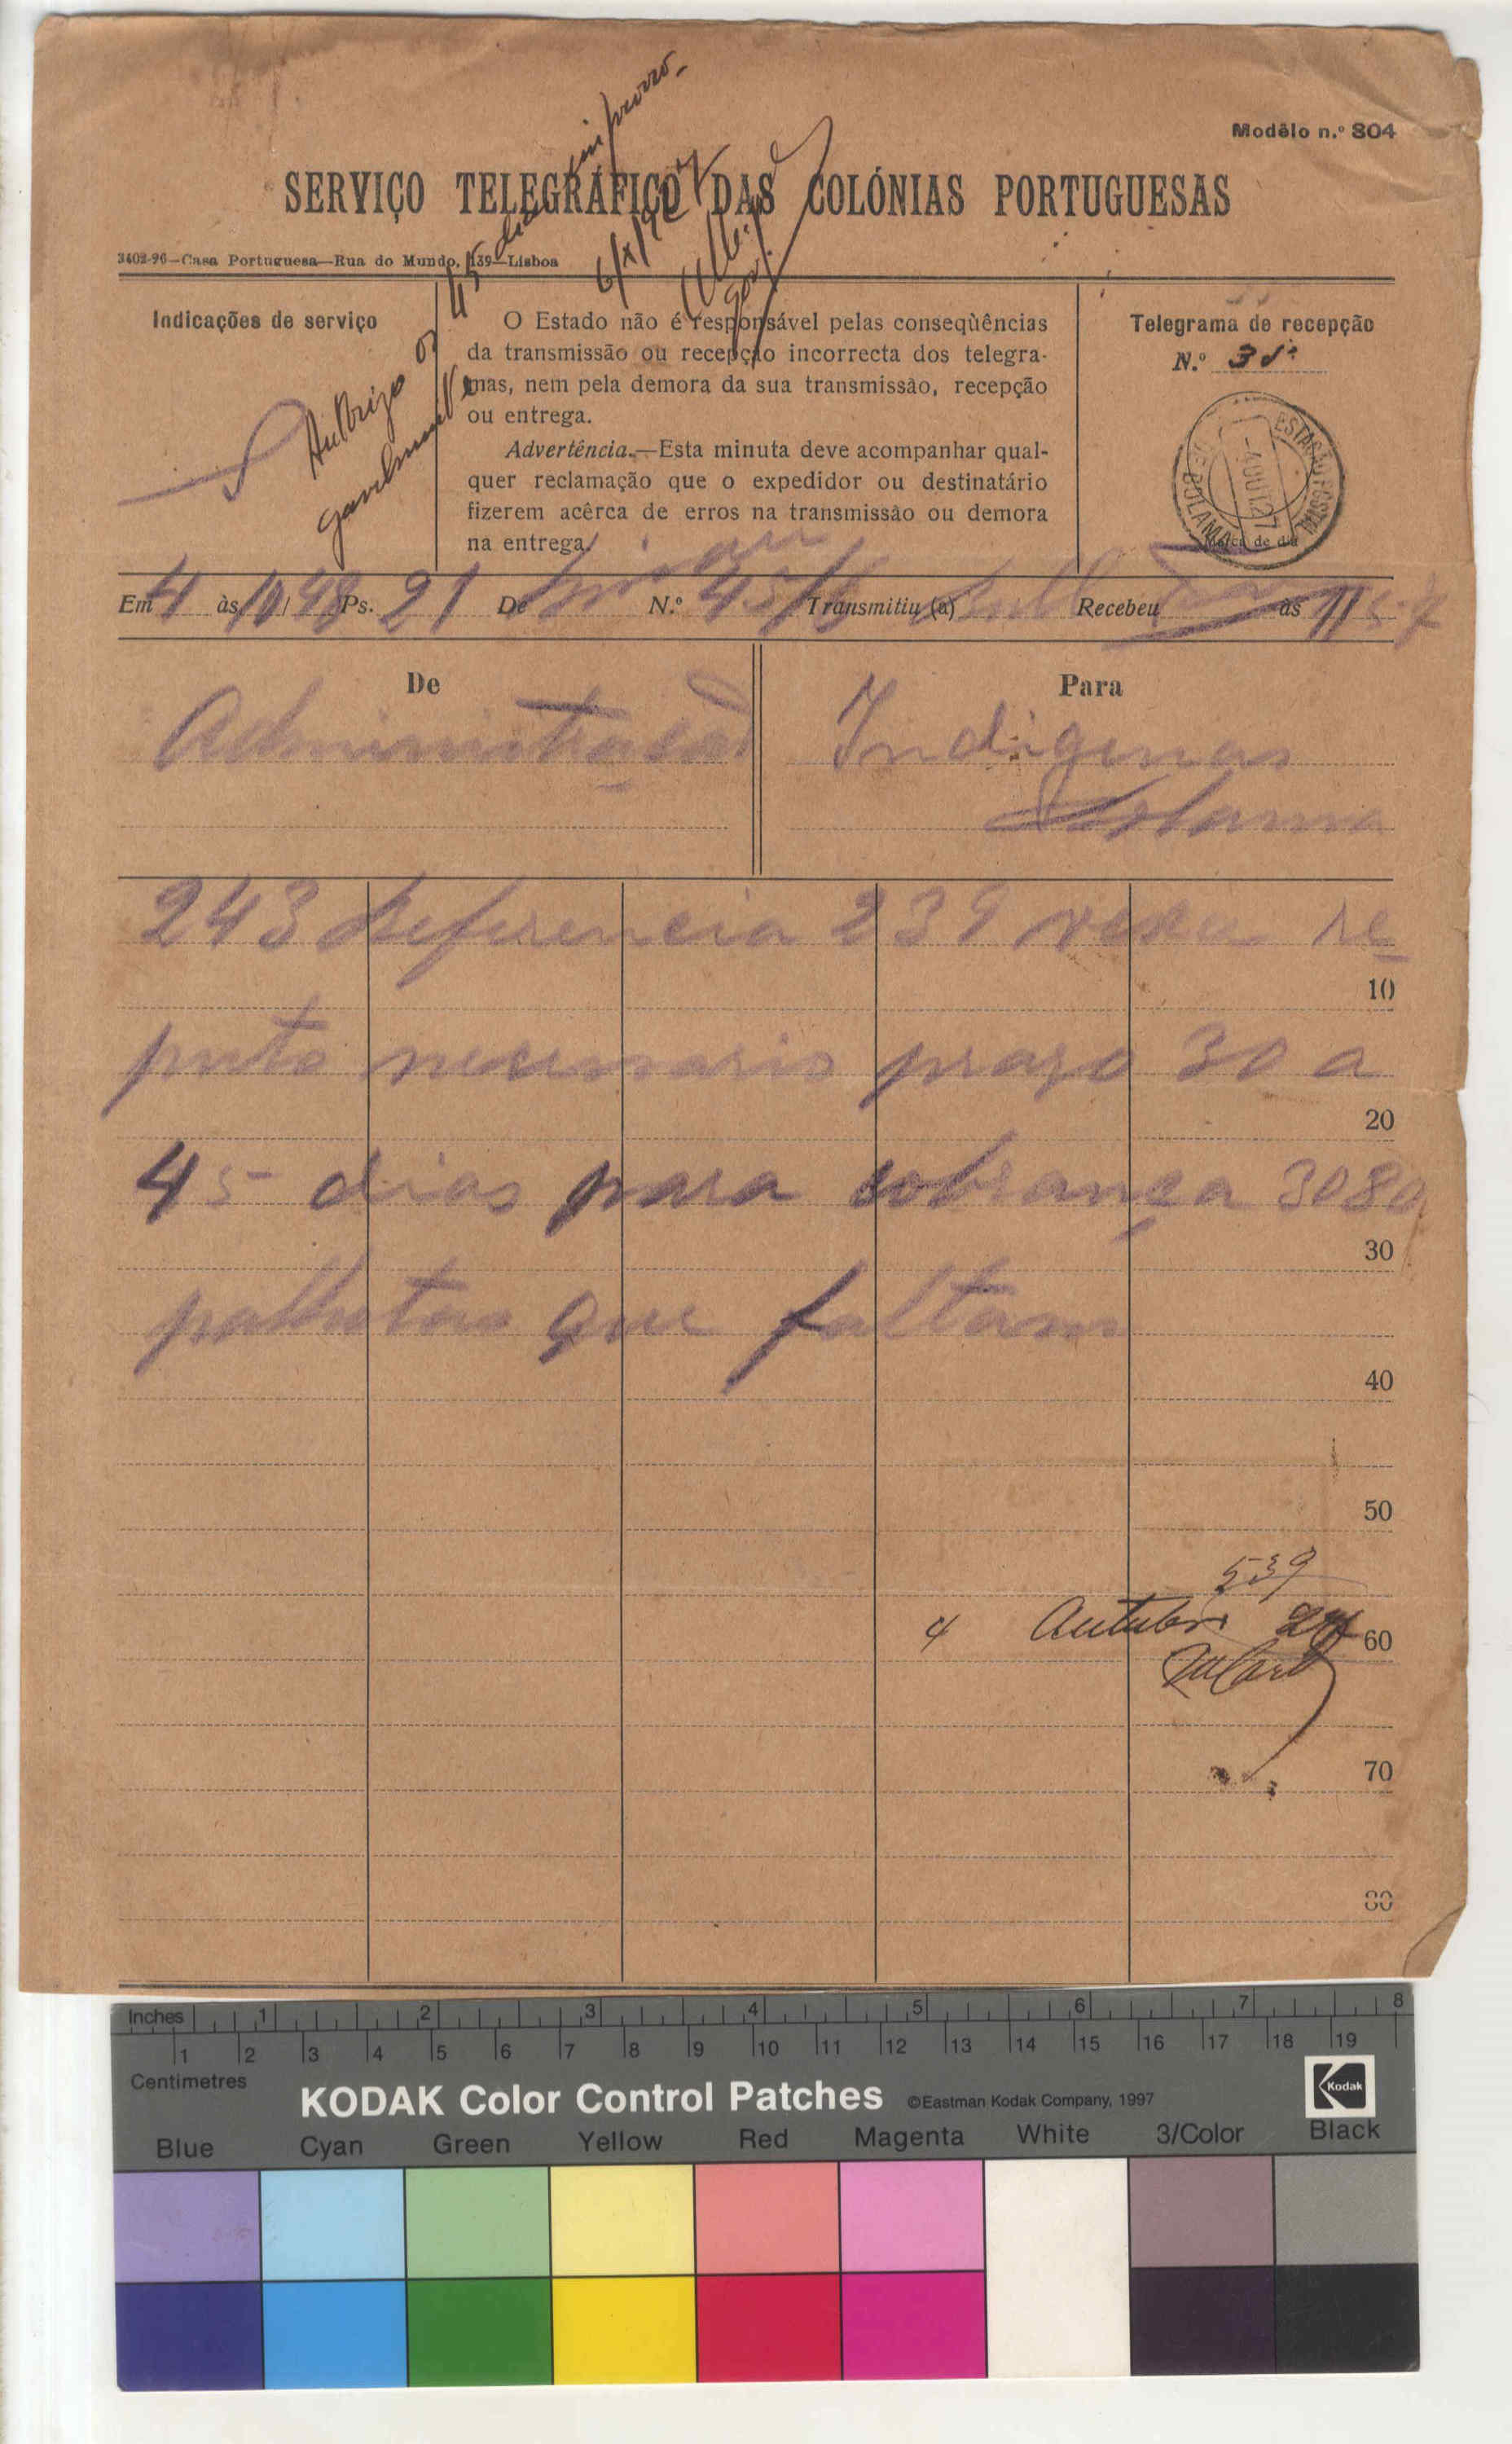 Modêlo n.º 804
SERVIÇO TELEGRÁFICO DAS COLÓNIAS PORTUGUESAS
3402-96—Casa Portuguesa—Rua do Mundo, 139—Lisboa
Indicações de serviço
Autorizo os 45 dias
6/X/927
O Estado não é responsável pelas conseqùências
da transmissão ou recepção incorrecta dos telegra-
mas, nem pela demora da sua transmissão, recepção
ou entrega.
Advertência.—Esta minuta deve acompanhar qual-
quer reclamação que o expedidor ou destinatário
fizerem acêrca de erros na transmissão ou demora
na entrega.
Telegrama de recepção
N.º
ESTAÇÃO POSTAL
-4 OUT. 27
BOLAMA
Marca de dia
Em 4 às 10/48 Ps. 21 De N.º 45/6 Transmitiu (a) Recebeu às 11
De
Administração
Para
Indigenas
Bolama
243 Referencia 239 vexa re
10
puto necessario prazo 30 a
20
45 dias para cobrança 3080
30
palhotas que faltam
40
50
539
4 Outubro 27 60
70
80
Inches 1 2 3 4 5 6 7 8
1 2 3 4 5 6 7 8 9 10 11 12 13 14 15 16 17 18 19
Centimetres
KODAK Color Control Patches ©Eastman Kodak Company, 1997 Kodak
Blue Cyan Green Yellow Red Magenta White 3/Color Black